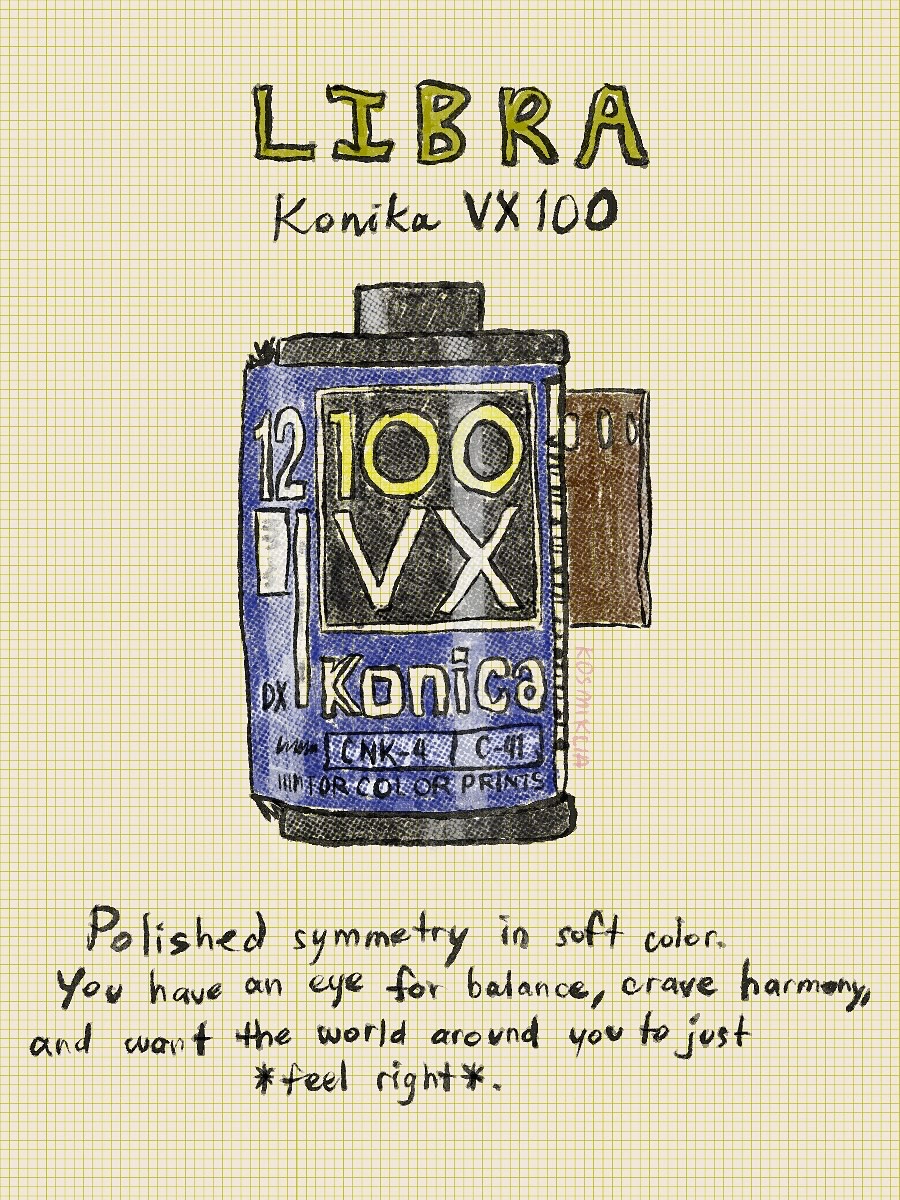 LIBRA
Konika VX 100
12
100
VX
DX
Konica
CNK-4 C-41
FOR COLOR PRINTS
KOSMIKLIA
Polished symmetry in soft color.
You have an eye for balance, crave harmony,
and want the world around you to just
*feel right*.